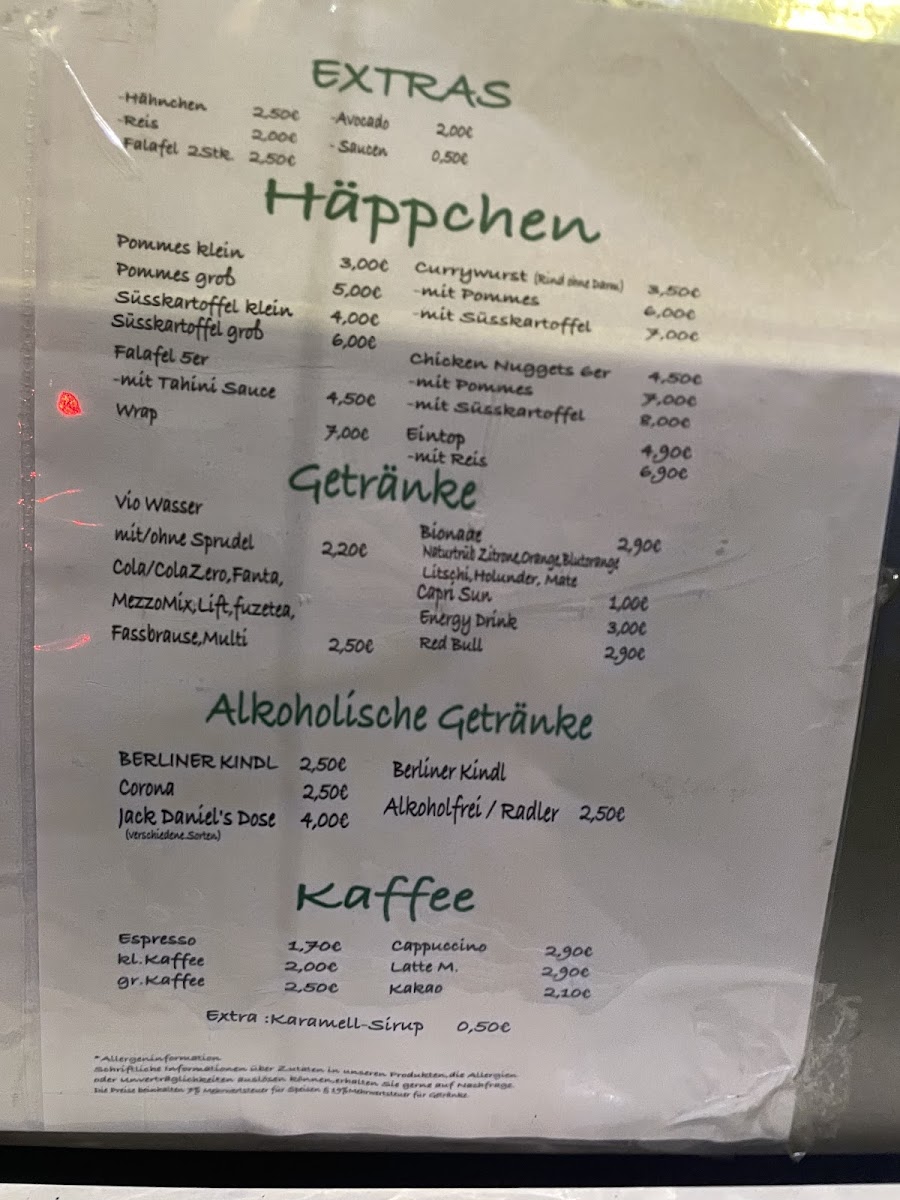 EXTRAS
-Hähnchen 2,50€ -Avocado 2,00€
-Reis 2,00€ -Saucen 0,50€
Falafel 2Stk. 2,50€
Häppchen
Pommes klein 3,00€
Pommes groß 5,00€
Süsskartoffel klein 4,00€
Süsskartoffel groß 6,00€
Falafel 5er
-mit Tahini Sauce 4,50€
Wrap 7,00€
Currywurst (Rind ohne Darm) 3,50€
-mit Pommes 6,00€
-mit Süsskartoffel 7,00€
Chicken Nuggets 6er 4,50€
-mit Pommes 7,00€
-mit Süsskartoffel 8,00€
Eintop 4,90€
-mit Reis 6,90€
Getränke
Vio Wasser
mit/ohne Sprudel 2,20€
Cola/ColaZero,Fanta,
MezzoMix,Lift,fuzetea,
Fassbrause,Multi 2,50€
Bionade 2,90€
Naturtrüb Zitrone,Orange,Blutorange
Litschi,Holunder, Mate
Capri Sun 1,00€
Energy Drink 3,00€
Red Bull 2,90€
Alkoholische Getränke
BERLINER KINDL 2,50€
Corona 2,50€
Jack Daniel's Dose 4,00€
(verschiedene Sorten)
Berliner Kindl
Alkoholfrei / Radler 2,50€
Kaffee
Espresso 1,70€ Cappuccino 2,90€
kl.Kaffee 2,00€ Latte M. 2,90€
gr.Kaffee 2,50€ Kakao 2,10€
Extra :Karamell-Sirup 0,50€
*Allergeninformation
Schriftliche Informationen über Zutaten in unseren Produkten,die Allergien
oder Unverträglichkeiten auslösen können,erhalten Sie gerne auf Nachfrage
Die Preise beinhalten 7% Mehrwertsteuer für Speisen & 19%Mehrwertsteuer für Getränke